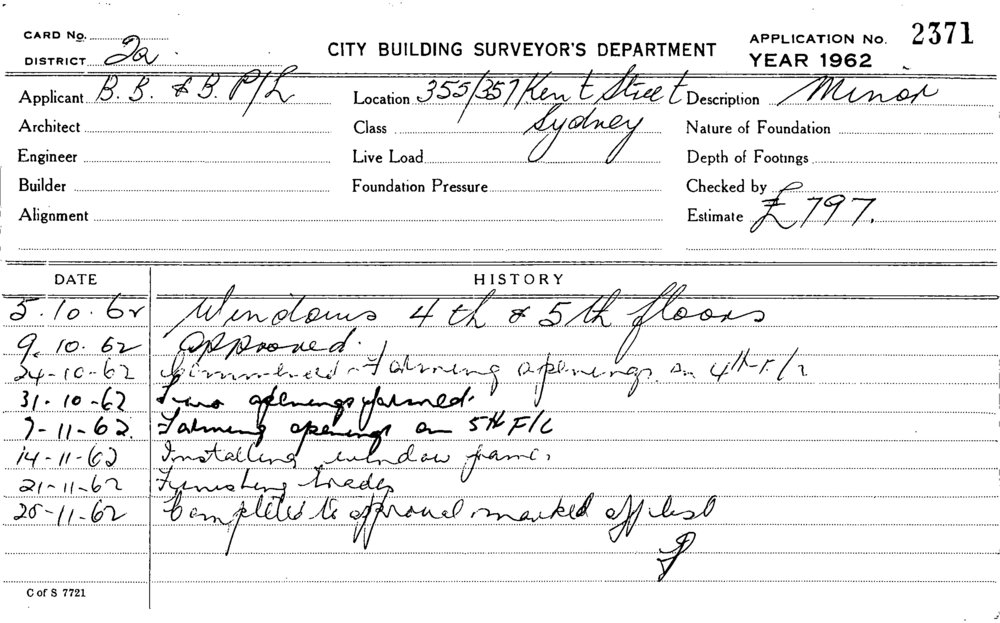 CARD No.
DISTRICT 2a
CITY BUILDING SURVEYOR'S DEPARTMENT
APPLICATION No. 2371
YEAR 1962
Applicant B. B. & B. P/L
Location 355/357 Kent Street
Sydney
Description Minor
Architect
Class
Nature of Foundation
Engineer
Live Load
Depth of Footings
Builder
Foundation Pressure
Checked by
Alignment
Estimate £797.
DATE HISTORY
5.10.62 Windows 4th & 5th floors
9.10.62 approved.
24-10-62 Commenced - Forming openings on 4th F/L
31-10-62 Two openings formed.
7-11-62. Forming openings on 5th F/L
14-11-62 Installing window frames
21-11-62 Finishing trades
26-11-62 Completed to approval marked off list
C of S 7721